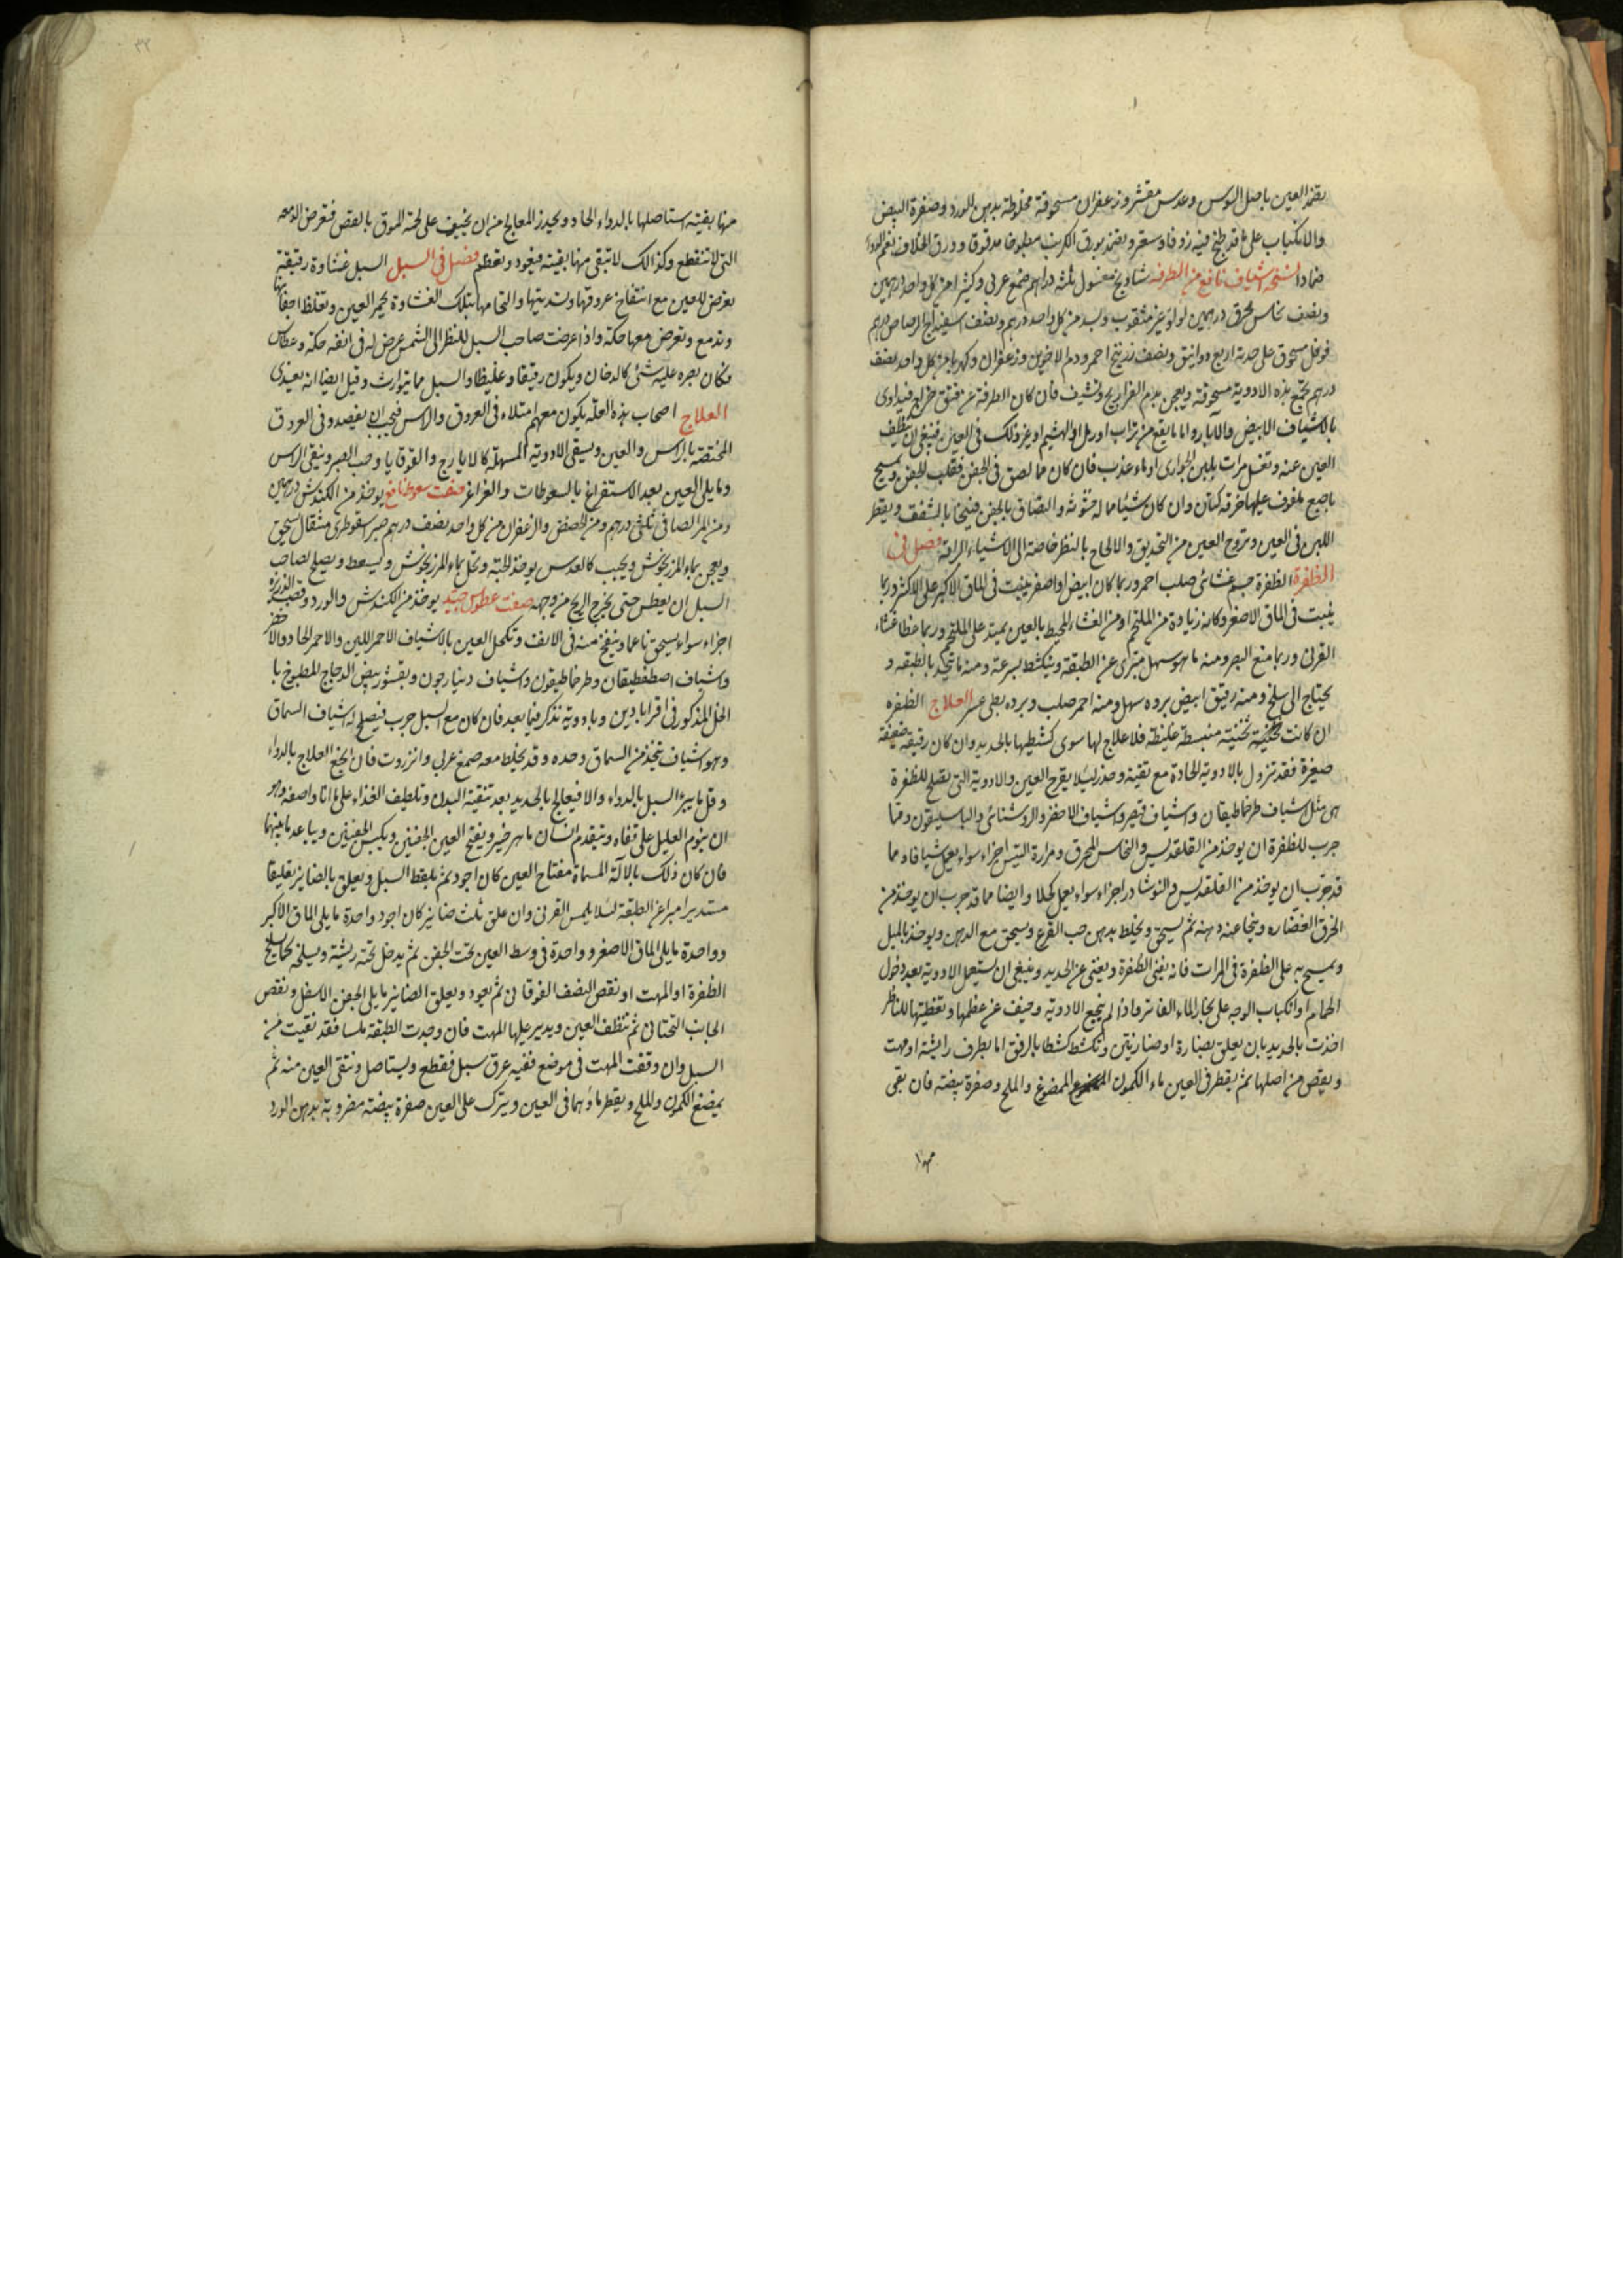 يضمد العين باصل السوس وعدس مقشر وزعفران مسحوقة مخلوطة بدهن الورد وصفرة البيض
والانكباب على ماء قد طبخ فيه زوفا وسعتر ويضمد بورق الكرنب مطبوخا مدقوقا وورق الخلاف نعم الدواء
ضمادا نسخة اشياف نافع من الطرفة شاذنج مغسول ثلثة دراهم صمغ عربي وكثيرا من كل واحد درهمين
ونصف نحاس محرق درهمين لولو غير مثقوب وبسد من كل واحد درهم ونصف اسفيداج الرصاص درهم
فوفل مسحوق على حدته اربع دوانيق ونصف زرنيخ احمر ودم الاخوين وزعفران وكهربا من كل واحد نصف
درهم تجمع هذه الادوية مسحوقة ويعجن بدم الفراريج وتشيف فان كان الطرفة عن فتق خراج فيداوى
بالاشياف الابيض والآبار واما ما يقع من تراب او رمل او الهشيم او غير ذلك في العين فينبغي ان تنظف
العين عنه وتغسل مرات بلبن الجواري او ماء عذب فان كان مما لصق في الجفن فقلب الجفن ويمسح
باصبع ملفوف عليها خرقة كتان وان كان شيئا مما له خشونة والتصاق بالجفن فينحا بالشفف ويقطر
اللبن في العين وتروح العين من التحديق والالحاح بالنظر خاصة الى الاشياء البراقة فصل في
الظفرة الظفرة جسم غشائي صلب احمر وربما كان ابيض او اصفر ينبت في الماق الاكبر على الاكثر وربما
ينبت في الماق الاصغر وكانه زيادة من الملتحم او من الغشاء المحيط بالعين يمتد على الملتحم وربما غطا غشاء
القرني وربما منع البصر ومنه ما هو سهل متبري عن الطبقة وينكشط بسرعة ومنه ما تتحد بالطبقة و
يحتاج الى سلخ ومنه رقيق ابيض برؤه سهل ومنه احمر صلب وبرؤه بطي عسر العلاج الظفره
ان كانت ثخينة منبسطة غليظة فلا علاج لها سوى كشطها بالحديد وان كان رقيقة ضعيفة
صغيرة فقد تزول بالادوية الحادة مع تنقية وحذر ليلا يقرح العين والادوية التي تصلح للظفرة
هي مثل شياف طرخماطيقان واشياف قيصر وشياف الاصفر والروشنائي والباسليقون ومما
جرب للظفرة ان يوخذ من القلقديس والنحاس المحرق ومرارة التيس اجزاء سواء يعمل شيافا ومما
قد جرب ان يوخذ من القلقديس والنوشادر اجزاء سواء يعمل كحلا وايضا مما قد جرب ان يوخذ من
الخزف الغضاره وينحا عنه دهنه ثم يسحق ويخلط بدهن حب القرع ويسحق مع الدهن ويوخذ بالميل
ويمسح به على الظفرة في المرات فانه يفني الظفرة ويغني عن الحديد وينبغي ان يستعمل الادوية بعد دخول
الحمام او انكباب الوجه على بخار الماء الفاتر واذا لم ينجع الادوية وخيف عن عظمها وتغطيتها للناظر
اخذت بالحديد بان يعلق بصنارة او صنارتين وتكشط كشطا بالرفق اما بطرف ريشة او مهت
ويقص من اصلها ثم يقطر في العين ماء الكمون الممضوغ والملح وصفرة بيضة فان بقى
منها
منها بقية استاصلها بالدواء الحاد ويحذر المعالج من ان يحيف على لحمة الموق بالقص فتعرض الدمعه
التي لا تنقطع وكذلك لا تبقى منها بقية فيعود وتعظم فصل في السبل السبل غشاوة رقيقة
يعرض للعين مع انتفاخ عروقها وتدبيتها والتحامها بتلك الغشاوة يحمر العين وتغلظ اجفانها
وتدمع وتعرض معها حكة واذا عرضت صاحب السبل للنظر الى الشمس عرض له في انفه حكة وعطاس
وكان بصره عليه شئ كالدخان ويكون رقيقا وغليظا والسبل مما يتوارث وقيل ايضا انه يعدي
العلاج اصحاب هذه العلة يكون معهم امتلاء في العروق والراس فيجب ان يفصدو في العروق
المختصة بالراس والعين ويسقى الادوية المسهلة كالايارج والقوقايا وحب الصبر وينقى الراس
وما يلي العين بعد الاستفراغ بالسعوطات والغراغر صفت سعوط نافع يوخذ من الكندش درهمين
ومن المر الصافي ثلثي درهم ومن الحضض والزعفران من كل واحد نصف درهم صبر سقوطري مثقال يسحق
ويعجن بماء المرزنجوش ويحبب كالعدس يوخذ للحبة وتحل بماء المرزنجوش ويسعط ويصلح لصاحب
السبل ان يعطس حتى يخرج الريح من وجهه صفت عطوس جيد يوخذ من الكندش والورد وقصب الذريرة
اجزاء سواء يسحق ناعما وينفخ منه في الانف وتكحل العين بالاشياف الاحمر اللين والاحمر الحاد والاخضر
وشياف اصطفطيقان وطرخماطيقون واشياف ديناركون وبقشور بيض الدجاج المطبوخ با
الخل المذكور في اقراباذين وبادوية تذكر فيما بعد فان كان مع السبل جرب فيصلح له شياف السماق
وهو اشياف يتخذ من السماق وحده وقد يخلط معه صمغ عربي وانزروت فان انجع العلاج بالدواء
وقل ما يبرا السبل بالدواء والا فيعالج بالحديد بعد تنقية البدن وتلطيف الغذاء على ما انا واصفه وهو
ان ينوم العليل على قفاه ويتقدم انسان ماهر خبير ويفتح العين الجفنين ويكبس الجفنين ويباعد ما بينهما
فان كان ذلك بالآلة المسماة مفتاح العين كان اجود ثم يلقط السبل ويعلق بالصنانير تعليقا
مستديرا مبرا عن الطبقة لئلا يلمس القرني وان علق ثلث صنانير كان اجود واحدة ما يلي الماق الاكبر
وواحدة ما يلي الماق الاصغر وواحدة في وسط العين تحت الجفن ثم يدخل تحته ريشة ويسلخه كما يسلخ
الظفرة او المهت او نقص النصف الفوقاني ثم يعود ويعلق الصنانير ما يلي الجفن الاسفل ونقص
الجانب التحتاني ثم تنظف العين ويدير عليها المهت فان وجدت الطبقة ملسا فقد نقيت من
السبل وان وقفت المهت في موضع ففيه عرق سبل فقطع ويستاصل وتنقى العين منه ثم
يمضغ الكمون والملح ويقطر ماؤهما في العين ويترك على العين صفرة بيضة مضروبة بدهن الورد